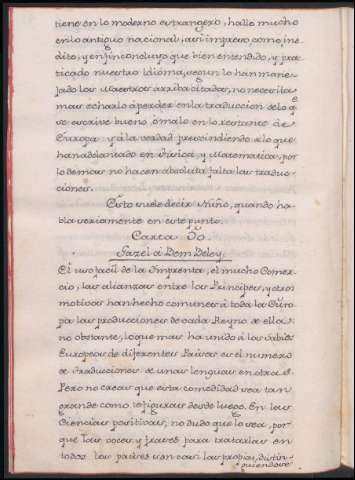 tiene en lo moderno extrangero, hallo mucho
en lo antiguo nacional, asi impreso, como ine-
dito, y en fin concluyo que bien entendido, y prac
ticado nuestro Idioma, segun lo han mane-
jado los Maestros arriba citados, no necesita
mas echarlo à perder en la traduccion de lo q.e
se escrive bueno, ò malo en lo restante de
Europa: y à la verdad prescindiendo de lo que
han adelantado en Fisica, y Matematica, por
lo demas no hacen absoluta falta las traduc-
ciones.
Esto suele decir Nuño, quando ha-
bla seriamente en este punto.
Carta 50
Gazel à Ben Beley.
El uso facil de la Imprenta, el mucho Comer-
cio, las alianzas entre los Principes, y otros
motivos han hecho comunes à toda la Euro
pa las producciones de cada Reyno de ella:
no obstante, lo que mas ha unido à los sabios
Europeos de diferentes Paises es el numero
de traducciones de unas lenguas en otras.
Pero no creas que esta comodidad sea tan
grande como te figuras desde luego. En las
Ciencias positivas, no dudo que lo sea, por-
que las voces y frases para tratarlas en
todos los paises son casi las propias, distin-
guiendose